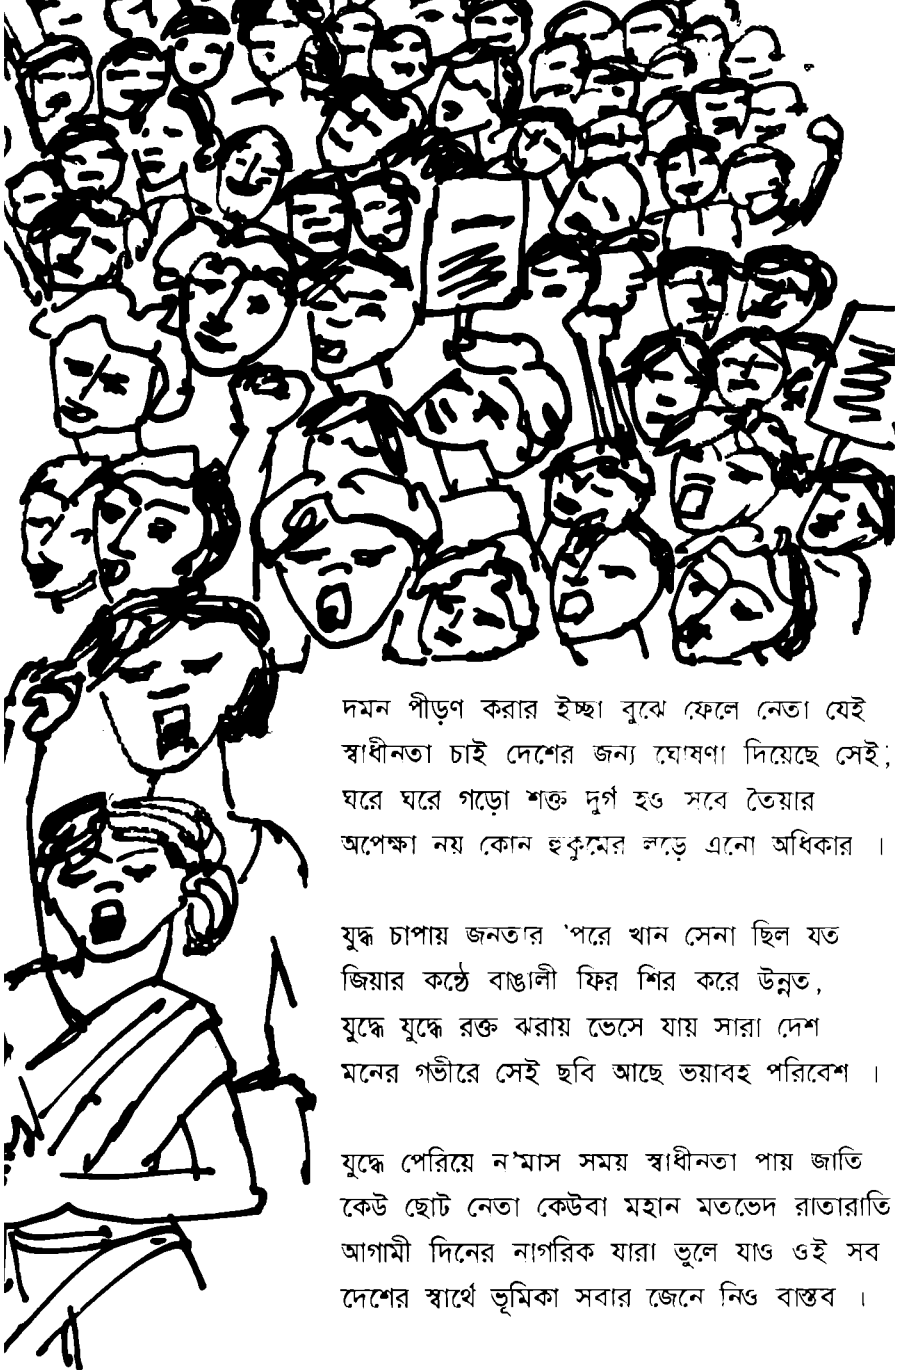 দমন পীড়ণ করার ইচ্ছা বুঝে ফেলে নেতা যেই
স্বাধীনতা চাই দেশের জন্য ঘোষণা দিয়েছে সেই;
ঘরে ঘরে গড়ো শক্ত দুর্গ হও সবে তৈয়ার
অপেক্ষা নয় কোন হুকুমের লড়ে এনো অধিকার ।
যুদ্ধ চাপায় জনতার 'পরে খান সেনা ছিল যত
জিয়ার কন্ঠে বাঙালী ফির শির করে উন্নত,
যুদ্ধে যুদ্ধে রক্ত ঝরায় ভেসে যায় সারা দেশ
মনের গভীরে সেই ছবি আছে ভয়াবহ পরিবেশ ।
যুদ্ধে পেরিয়ে ন'মাস সময় স্বাধীনতা পায় জাতি
কেউ ছোট নেতা কেউবা মহান মতভেদ রাতারাতি
আগামী দিনের নাগরিক যারা ভুলে যাও ওই সব
দেশের স্বার্থে ভূমিকা সবার জেনে নিও বাস্তব ।